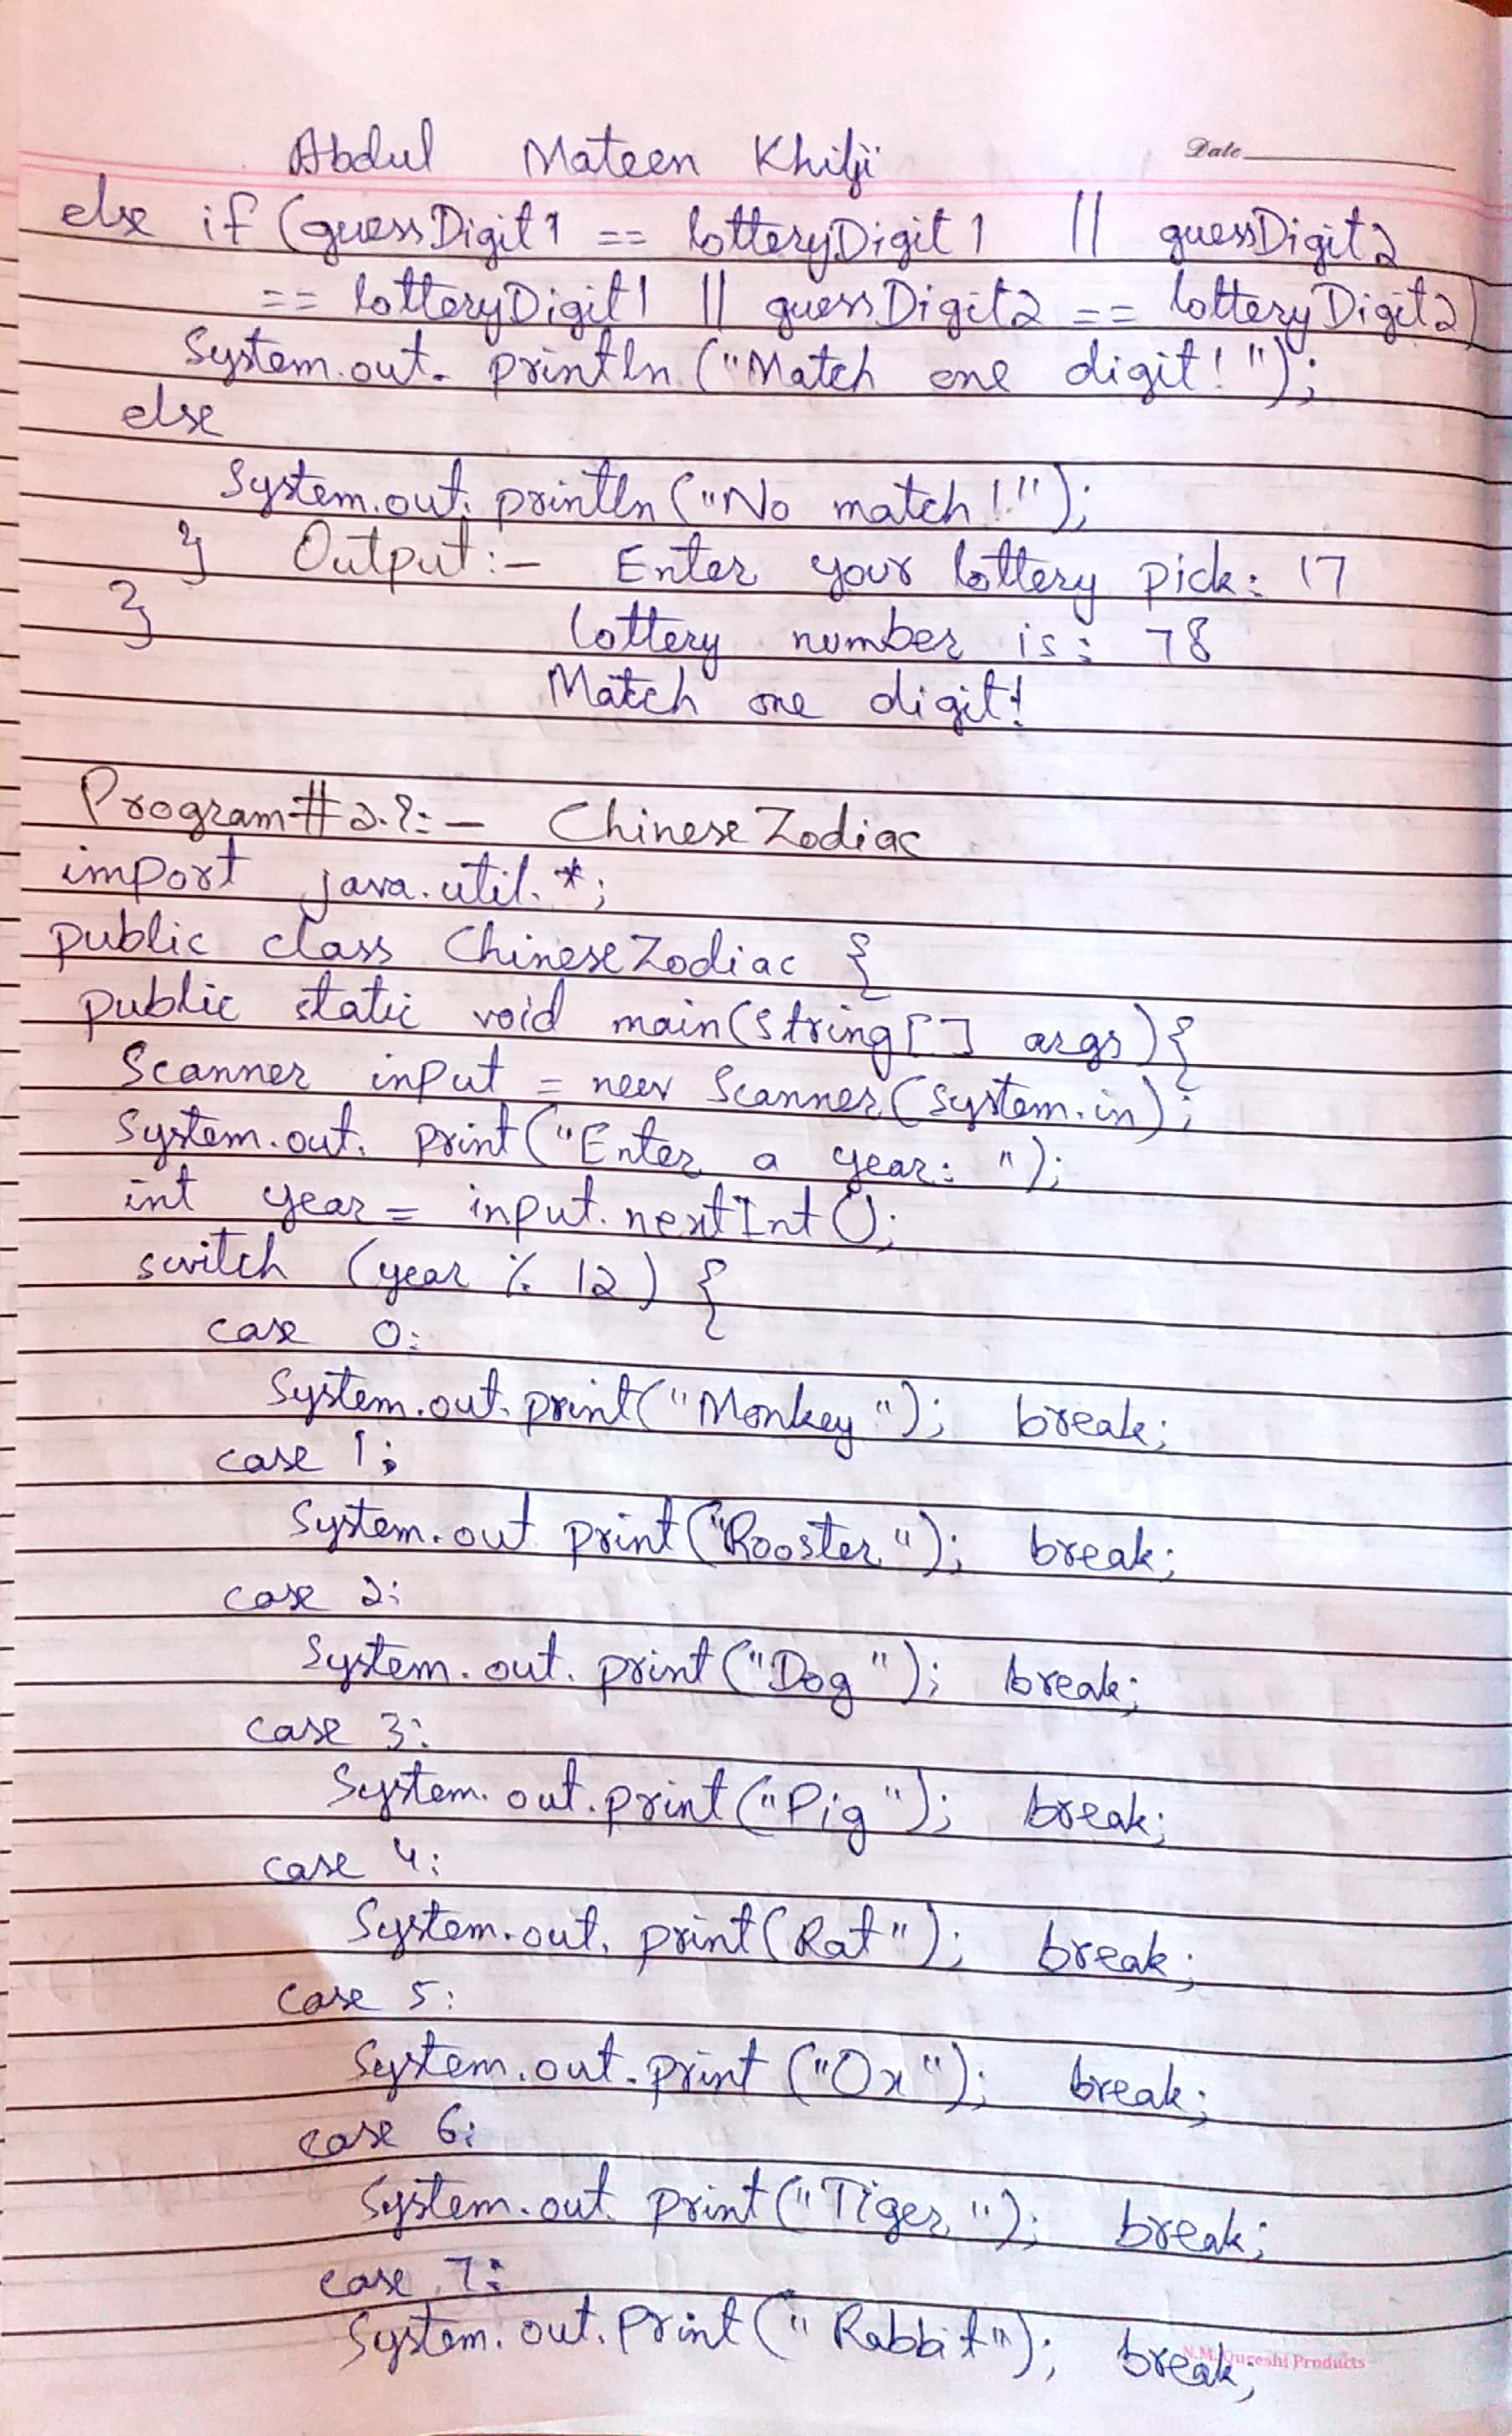 Abdul Mateen Khilji
Date
else if (guessDigit1 == lotteryDigit1 || guessDigit2
== lotteryDigit1 || guessDigit2 == lotteryDigit2)
System.out.println("Match one digit!");
else
System.out.println("No match!");
} Output:- Enter your lottery pick: 17
} lottery number is: 78
Match one digit!
Program#2.9:- ChineseZodiac
import java.util.*;
public class ChineseZodiac {
public static void main(String[] args){
Scanner input = new Scanner(System.in);
System.out.print("Enter a year: ");
int year = input.nextInt();
switch (year % 12) {
case 0:
System.out.print("Monkey"); break;
case 1:
System.out print("Rooster"); break;
case 2:
System.out.print("Dog"); break;
case 3:
System.out.print("Pig"); break;
case 4:
System.out.print(Rat"); break;
case 5:
System.out.print("Ox"); break;
case 6:
System.out print("Tiger"); break;
case 7:
System.out.print("Rabbit"); break;
N.M. Qureshi Products